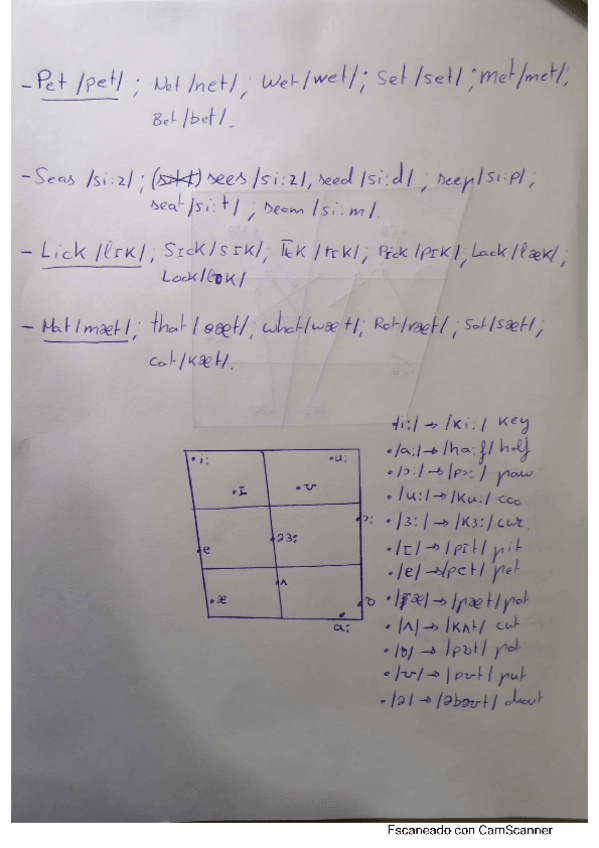 - Pet /pet/ ; Net /net/, Wet /wet/; Set /set/ ; met /met/;
Bet /bet/.
- Seas /si:z/ ; sees /si:z/, seed /si:d/ , seep /si:p/,
seat /si:t/ , seam /si:m/.
- Lick /lɪk/, Sick /sɪk/, Tick /tɪk/, Pick /pɪk/, Lack /læk/;
Lock /lɒk/
- Mat /mæt/; that /θæt/, what /wæt/; Rat /ræt/; Sat /sæt/;
cat /kæt/.
/i:/ → /ki:/ key
• /a:/ → /ha:f/ half
• /ɔ:/ → /pɔ:/ paw
• /u:/ → /ku:/ coo
• /ɜ:/ → /kɜ:/ cur
• /ɪ/ → /pɪt/ pit
• /e/ → /pet/ pet
• /æ/ → /pæt/ pat
• /ʌ/ → /kʌt/ cut
• /ɒ/ → /pɒt/ pot
• /ʊ/ → /pʊt/ put
• /ə/ → /əbaʊt/ about
• i: • u:
• ɪ • ʊ
• ɔ:
• e • əɜ:
• ʌ
• æ • ɒ
a:
Escaneado con CamScanner